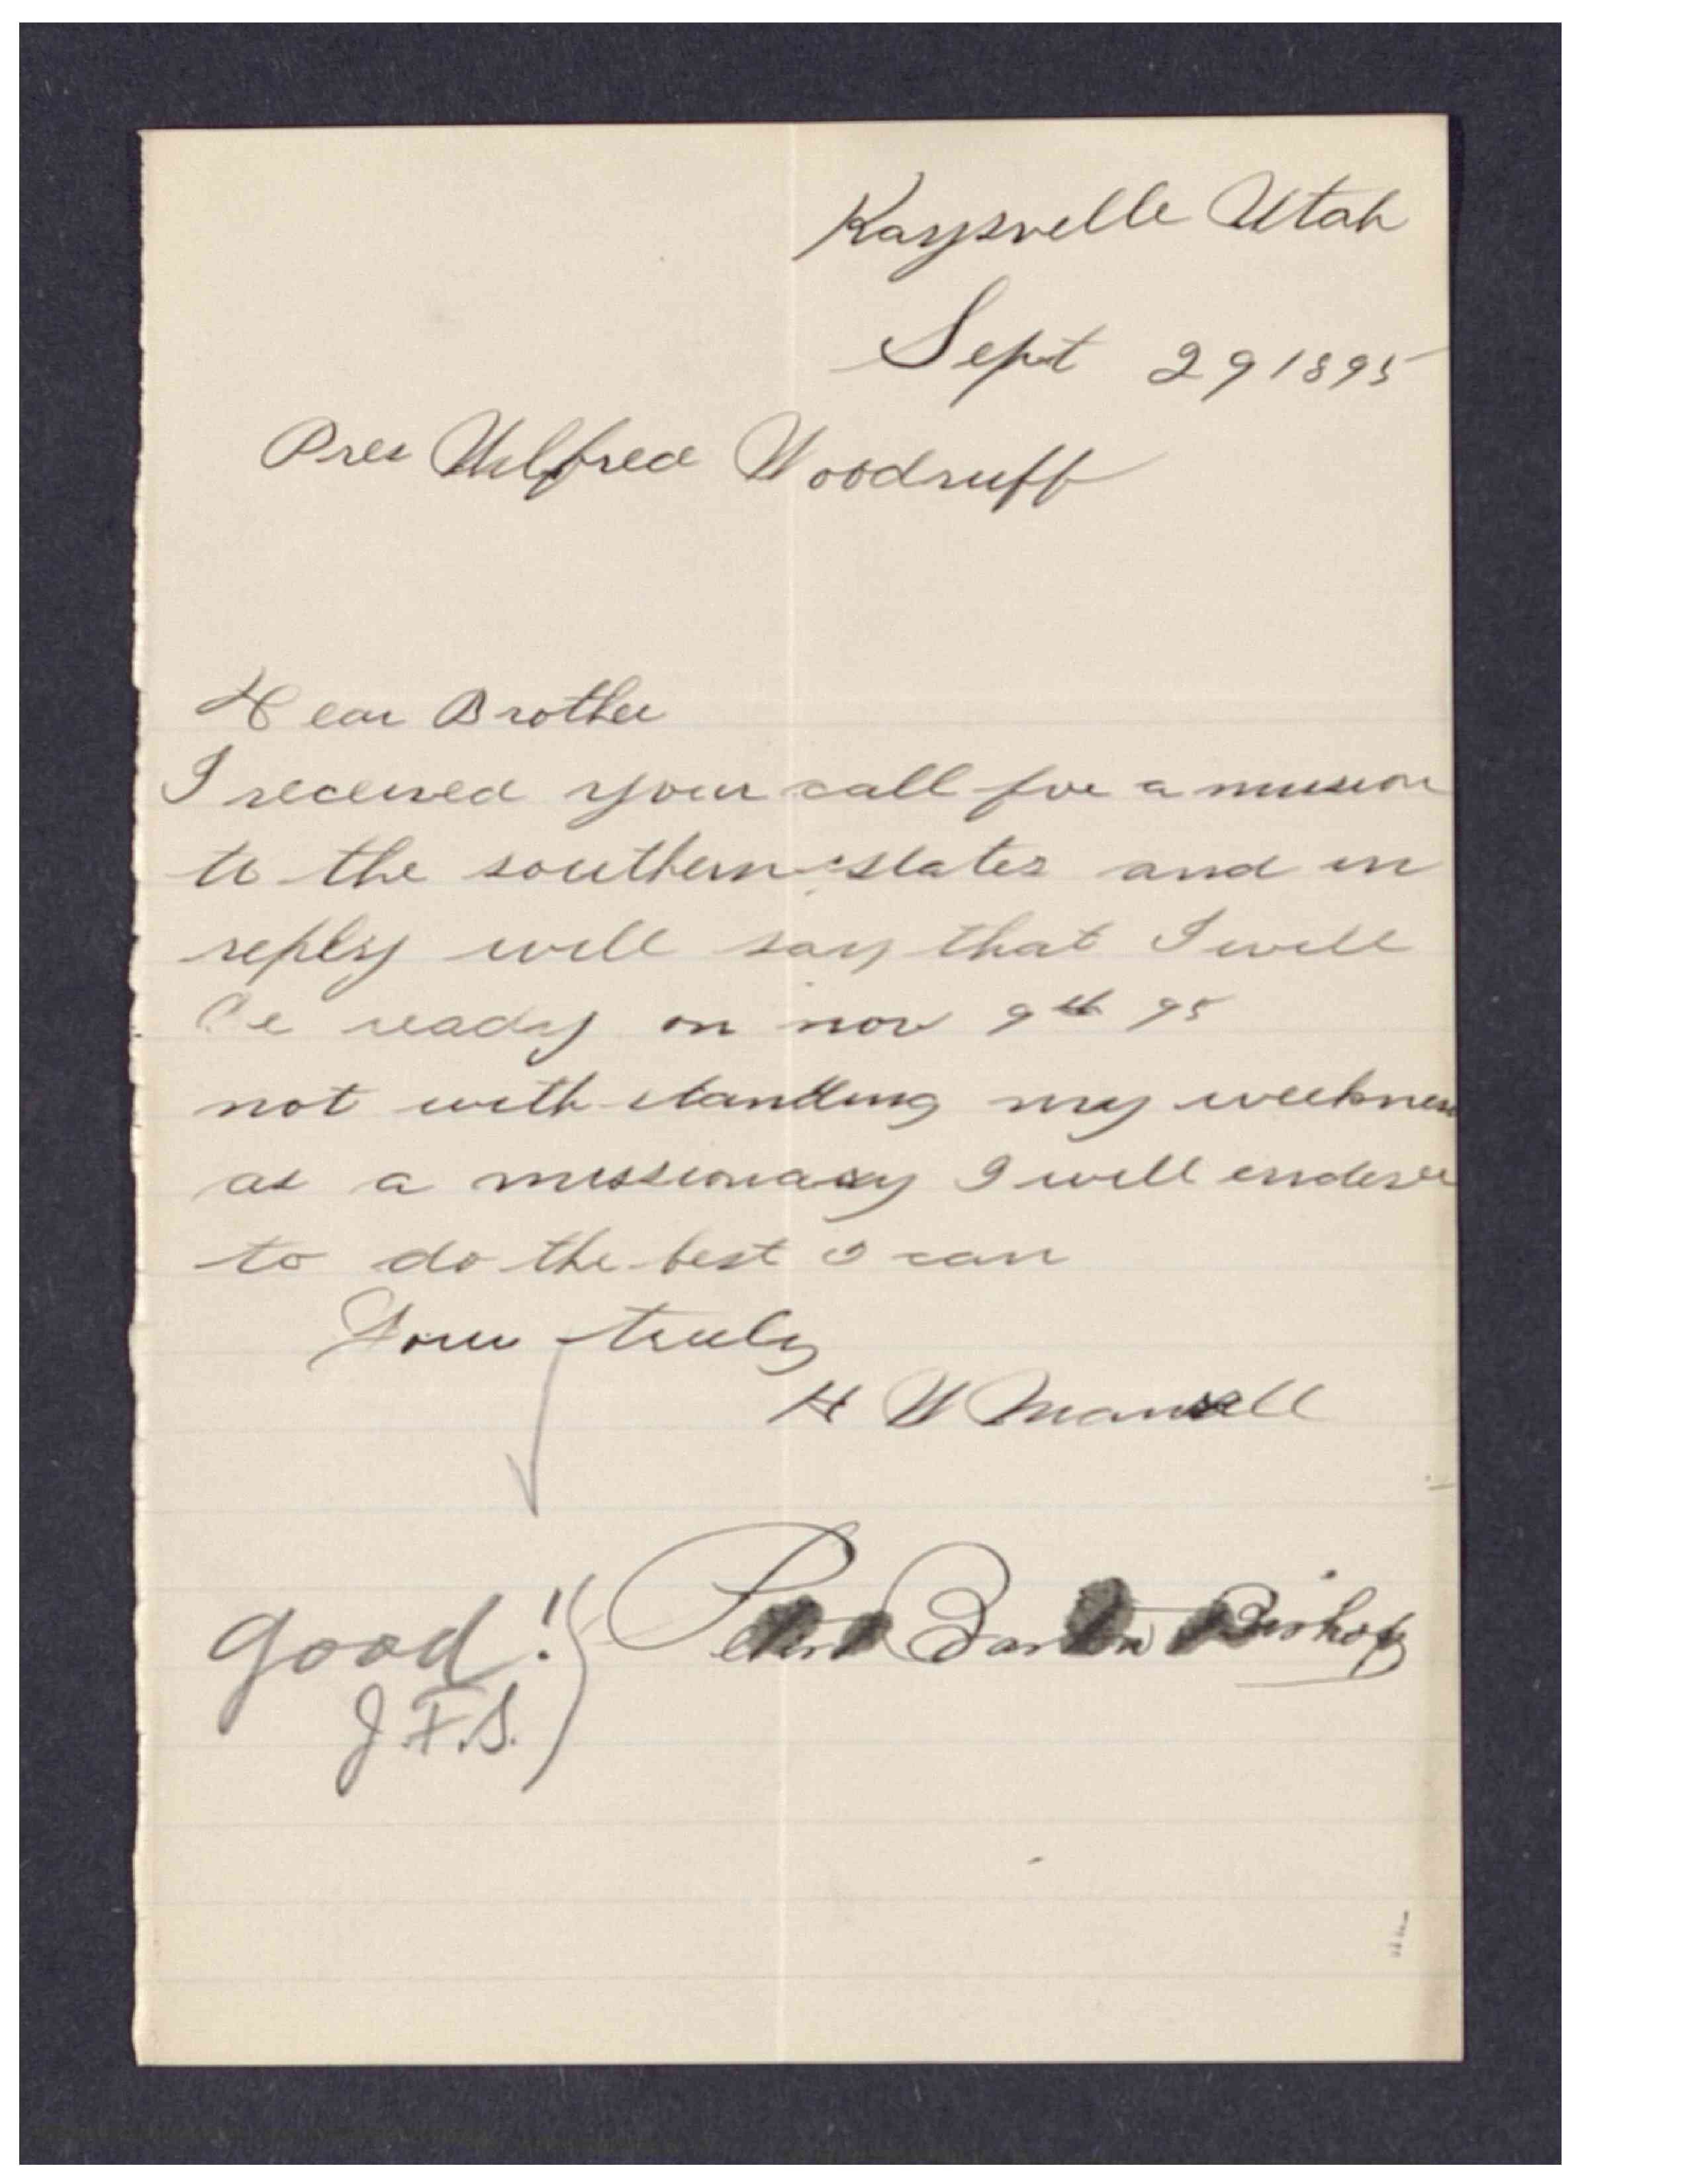 Kaysville Utah
Sept 29 1895
Pres Wilfred Woodruff
Dear Brother
I received your call for a mission
to the southern states and in
reply will say that I will
be ready on nov 9th 95
not with standing my weekness
as a missionary I will
to do the best I can
Your truly
H W Mansell
good! Peter Barton Bishop
J.F.S.